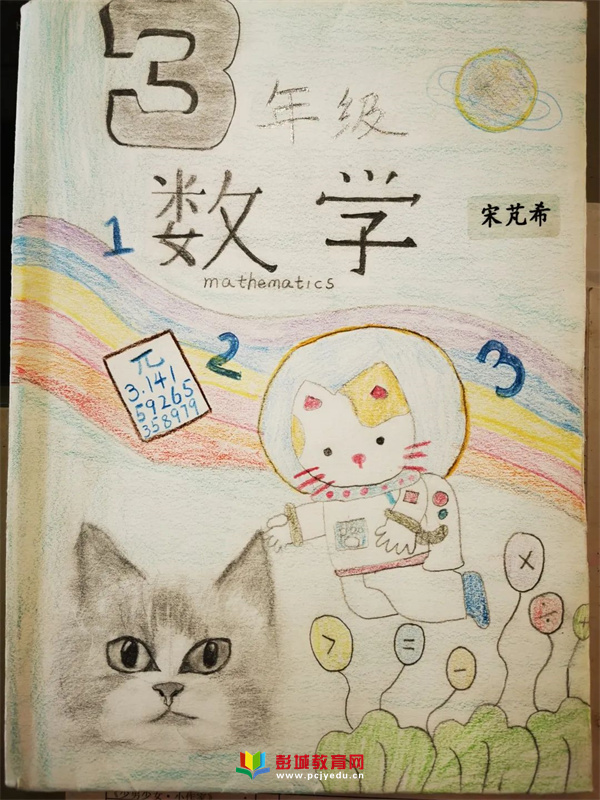 3
年级
数学
宋芃希
1
mathematics
2
3
π
3.141
59265
358979
×
÷
+
>
=
-
彭城教育网
www.pcjyedu.cn